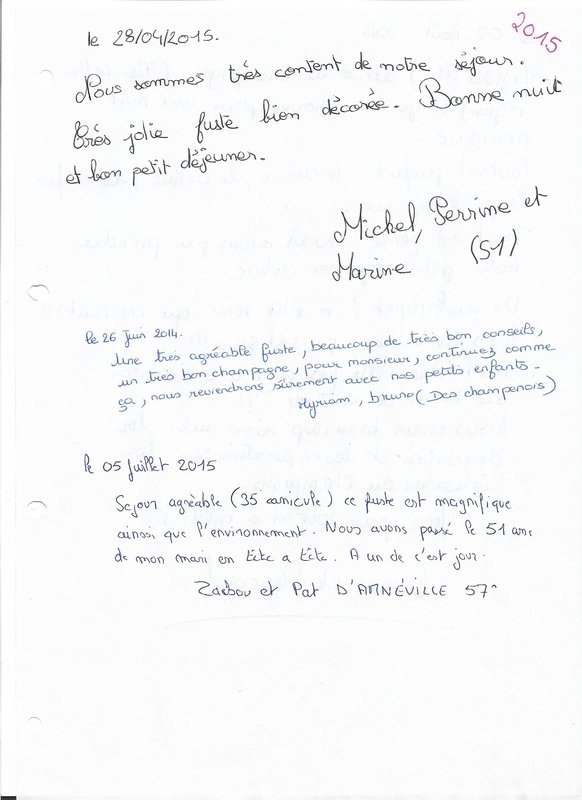 2015
le 28/04/2015.
Nous sommes très content de notre séjour.
Très jolie fuste bien décorée. Bonne nuit
et bon petit déjeuner.
Michel, Perrine et
Marine (51)
le 26 Juin 2014.
Une très agréable fuste, beaucoup de très bon conseils,
un très bon champagne, pour monsieur, continuez comme
ça, nous reviendrons sûrement avec nos petits enfants.
Myriam, bruno (Des champenois)
le 05 juillet 2015
Sejour agréable (35 canicule) ce fuste est magnifique
ainsi que l'environnement. Nous avons passé le 51 ans
de mon mari en tête a tête. A un de c'est jour.
et Pat D'AMNÉVILLE 57